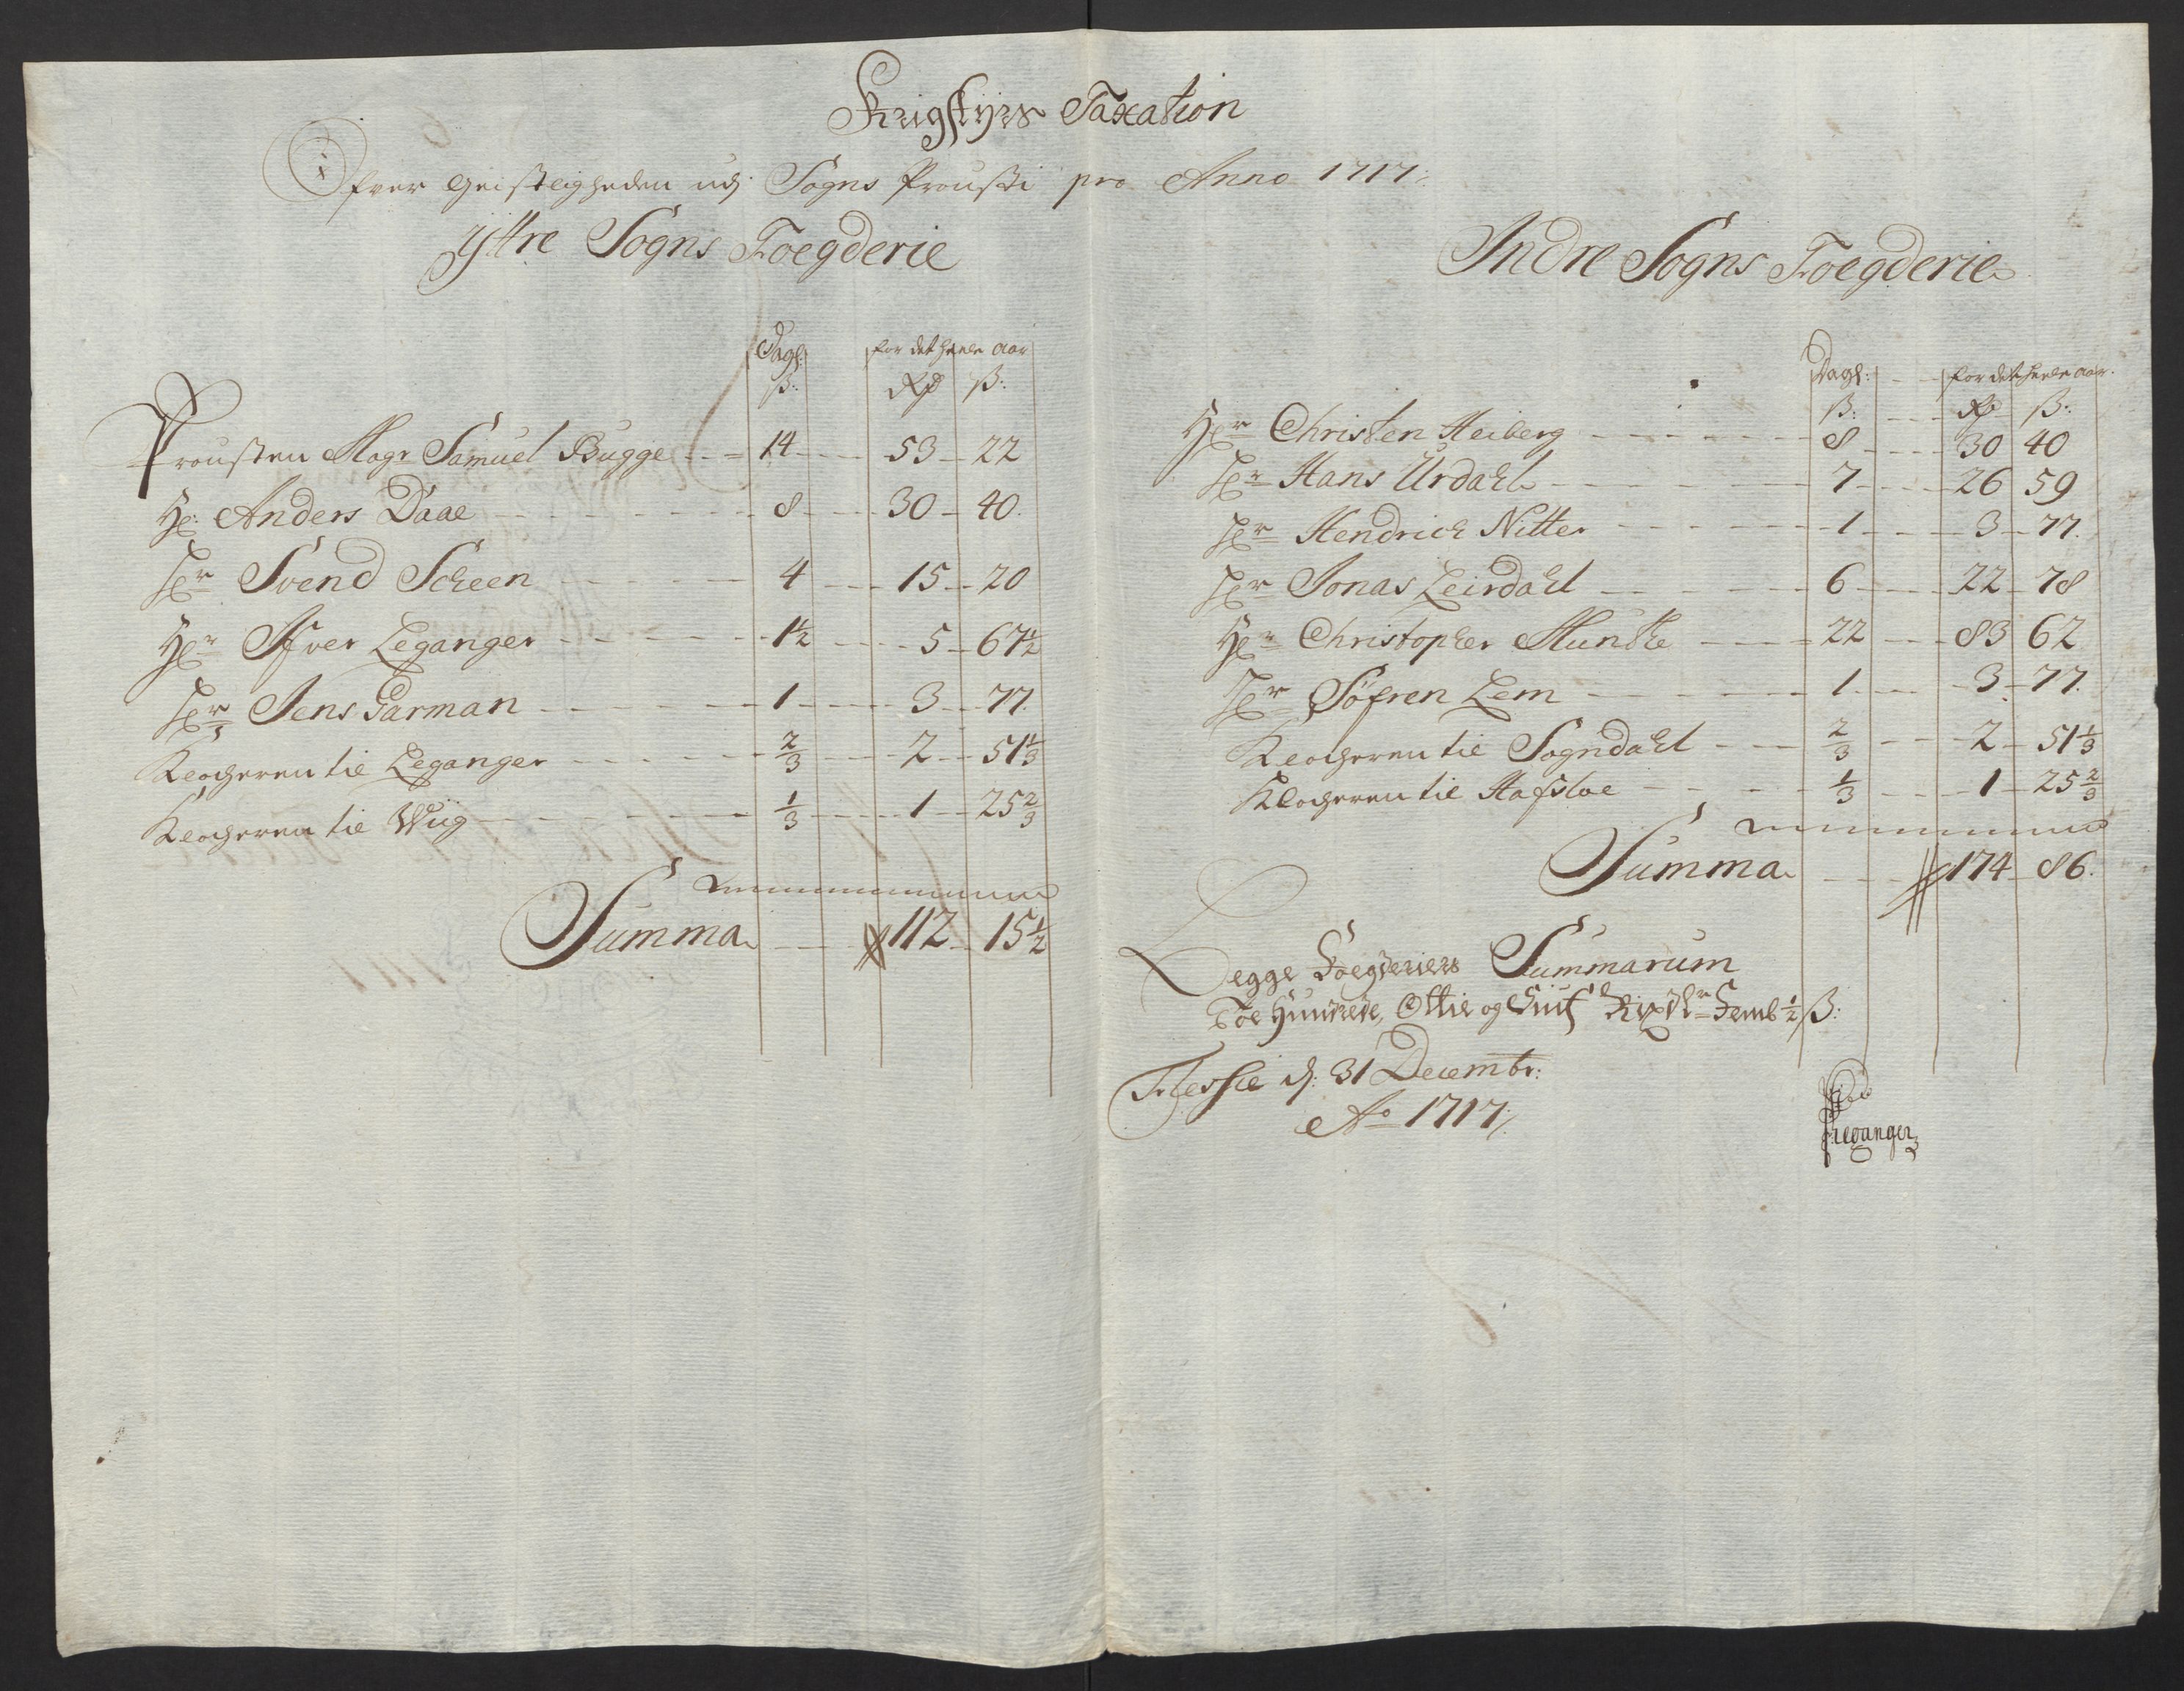 Krigstÿrs Taxation
Ofver Geistligheden udj Sogns Prousti pro Anno 1717:
ÿttre Sogns Foegderie
Dagl: for det heele Aar
ß: Rd ß:
Prousten Magr Samuel Bugge 14 53 22
Hr: Anders Daae 8 30 40.
Hr Svend Scheen 4 15 20
Hr Ifver Leganger 1½ 5 67½
Hr Jens Garman 1 3 77.
Klocheren til Leganger ⅔ 2 51⅓
Klocheren til Wiig ⅓ 1 25⅔
Summa 112 15½
Indre Sogns Foegderie
Dagl: for det heele Aar.
ß: Rd ß:
Hr Christen Heiberg 8 30 40
Hr Hans Urdahl 7 26 59
Hr Hendrich Nitter 1 3 77.
Hr Jonas Leirdahl 6 22 78
Hr Christopher Munthe 22 83 62
Hr Söfren Lem 1 3 77.
Klocheren til Sogndahl ⅔ 2 51⅓
Klocheren til Hafsloe ⅓ 1 25⅔
Summa 174 86.
Begge Foegderiers Summarum
Toe Hundrede, Ottie og Siuf Rixdlr Femb ½ ß:
Fressie d: 31 Decembr:
Ao 1717/.